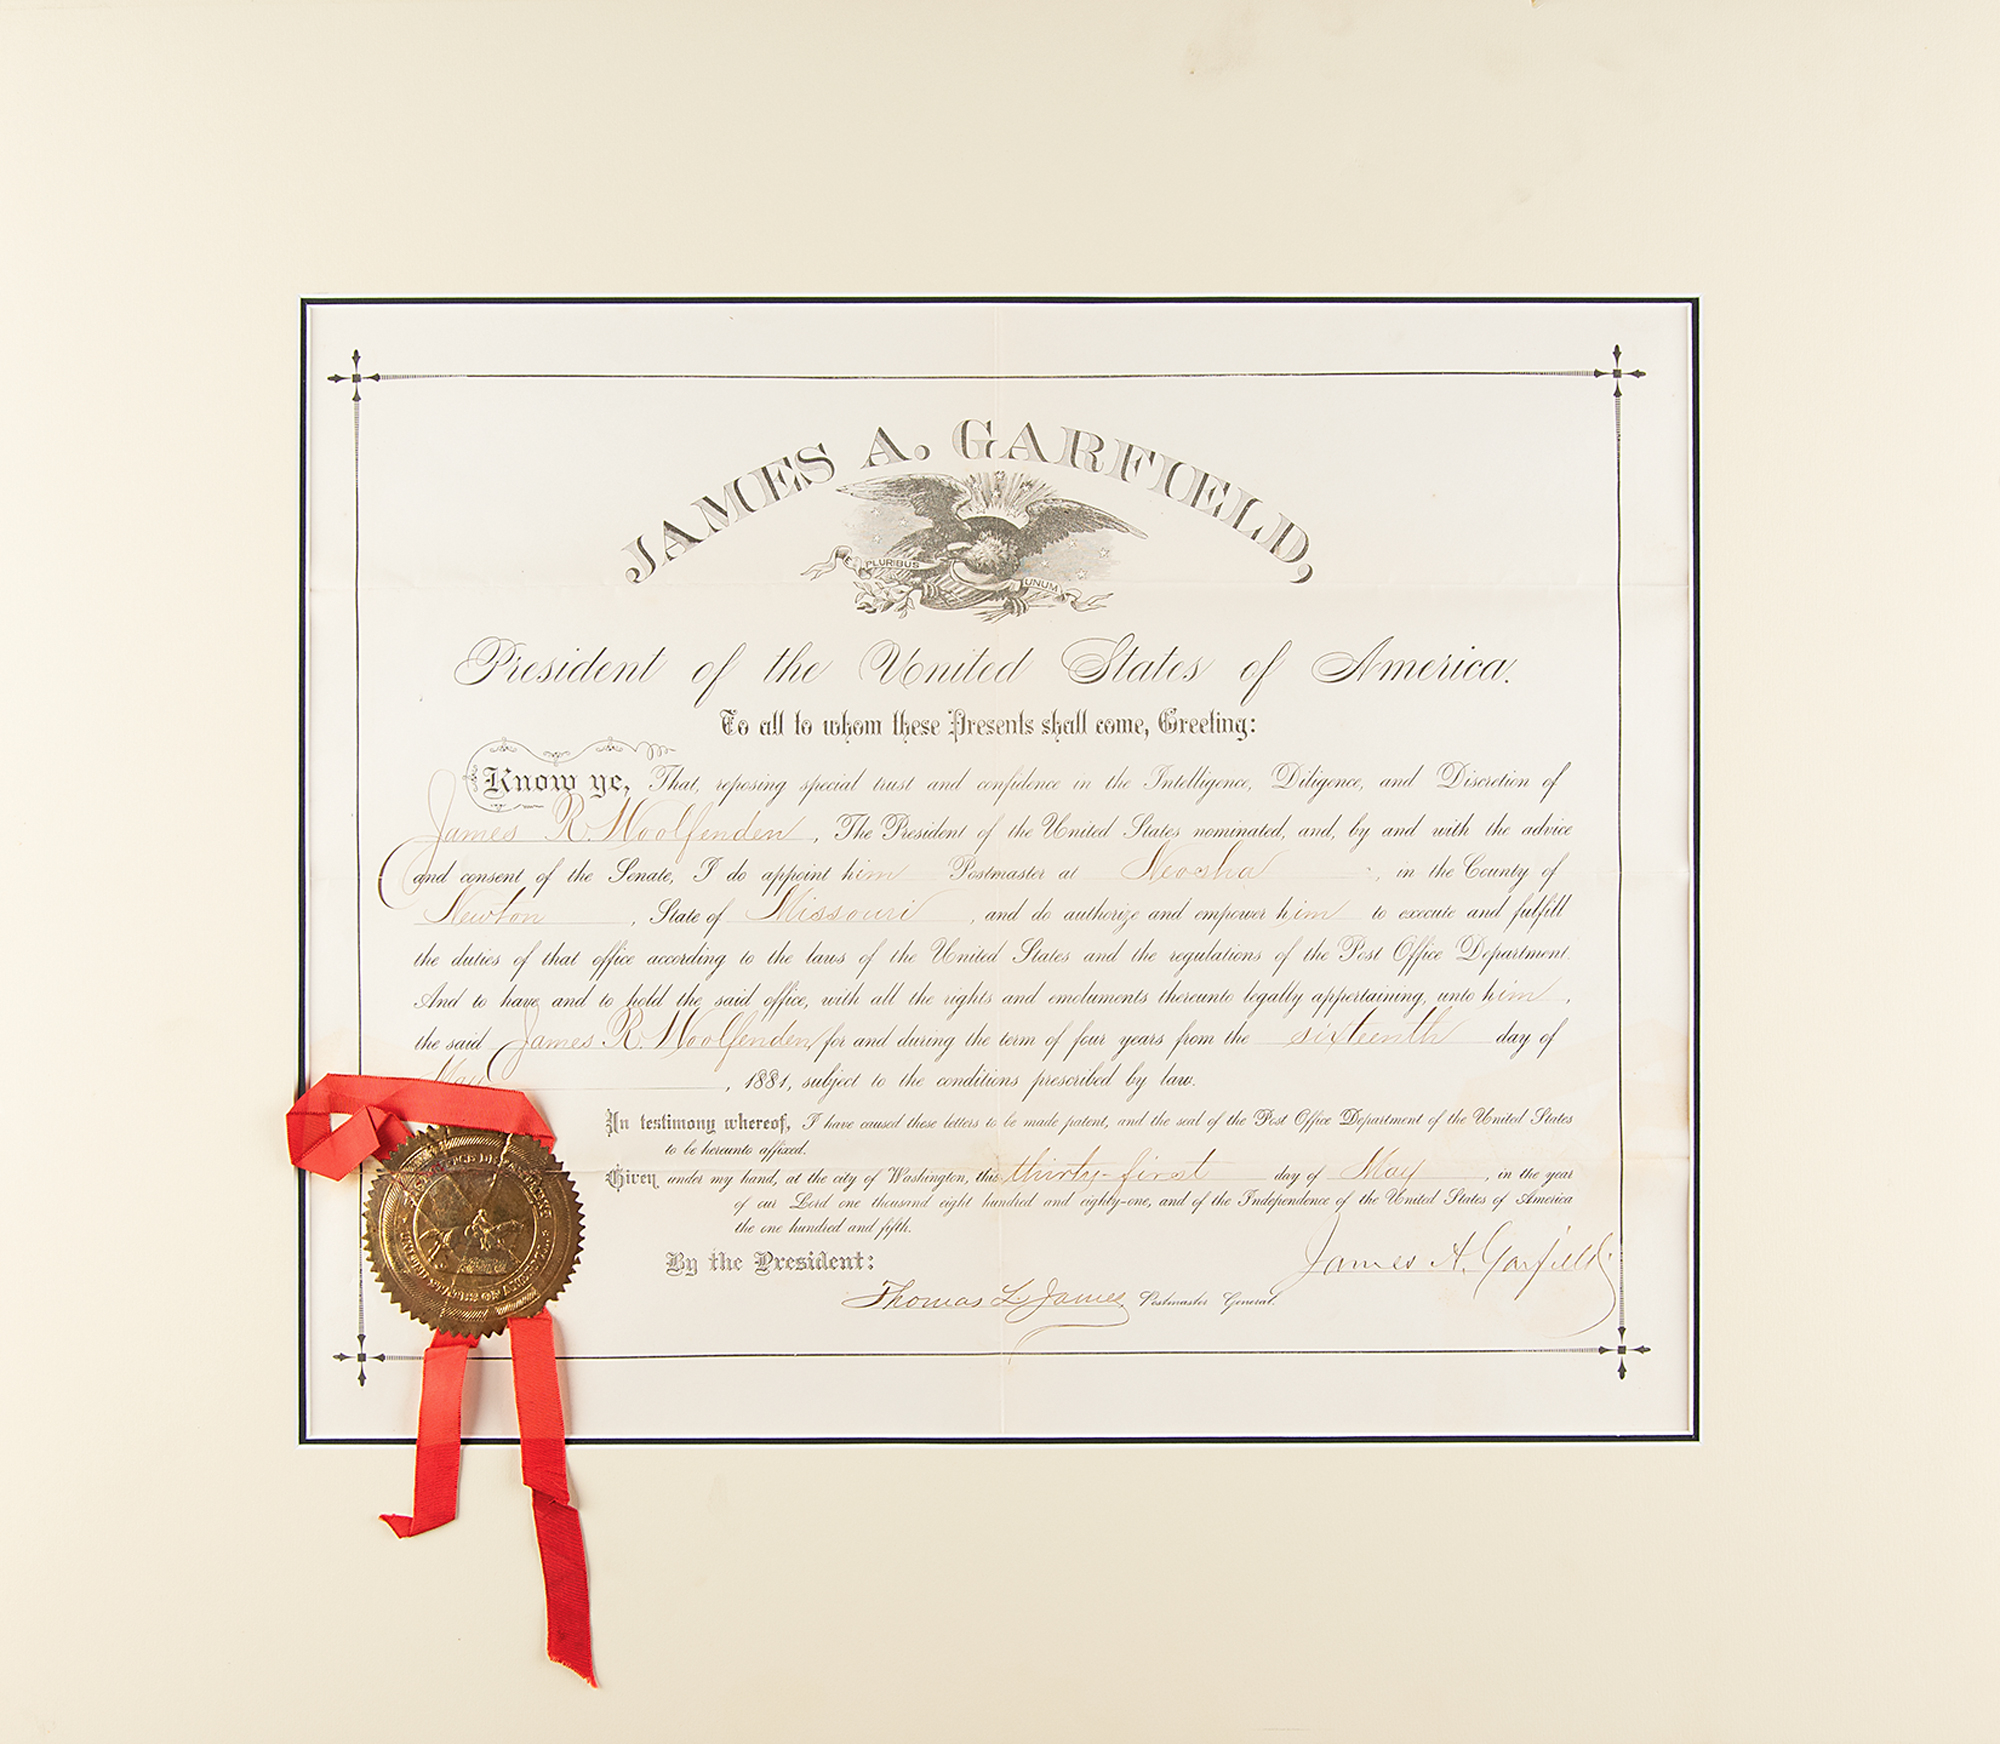 JAMES A. GARFIELD,
E PLURIBUS UNUM
President of the United States of America.
To all to whom these Presents shall come, Greeting:
Know ye, That, reposing special trust and confidence in the Intelligence, Diligence, and Discretion of
James R. Woolfenden, The President of the United States nominated, and, by and with the advice
and consent of the Senate, I do appoint him Postmaster at Neosha, in the County of
Newton, State of Missouri, and do authorize and empower him to execute and fulfill
the duties of that office according to the laws of the United States and the regulations of the Post Office Department.
And to have and to hold the said office, with all the rights and emoluments thereunto legally appertaining, unto him,
the said James R. Woolfenden, for and during the term of four years from the sixteenth day of
May, 1881, subject to the conditions prescribed by law.
In testimony whereof, I have caused these letters to be made patent, and the seal of the Post Office Department of the United States
to be hereunto affixed.
Given under my hand, at the city of Washington, this thirty-first day of May, in the year
of our Lord one thousand eight hundred and eighty-one, and of the Independence of the United States of America
the one hundred and fifth.
By the President:
James A. Garfield
Thomas L. James, Postmaster General.
UNITED STATES OF AMERICA